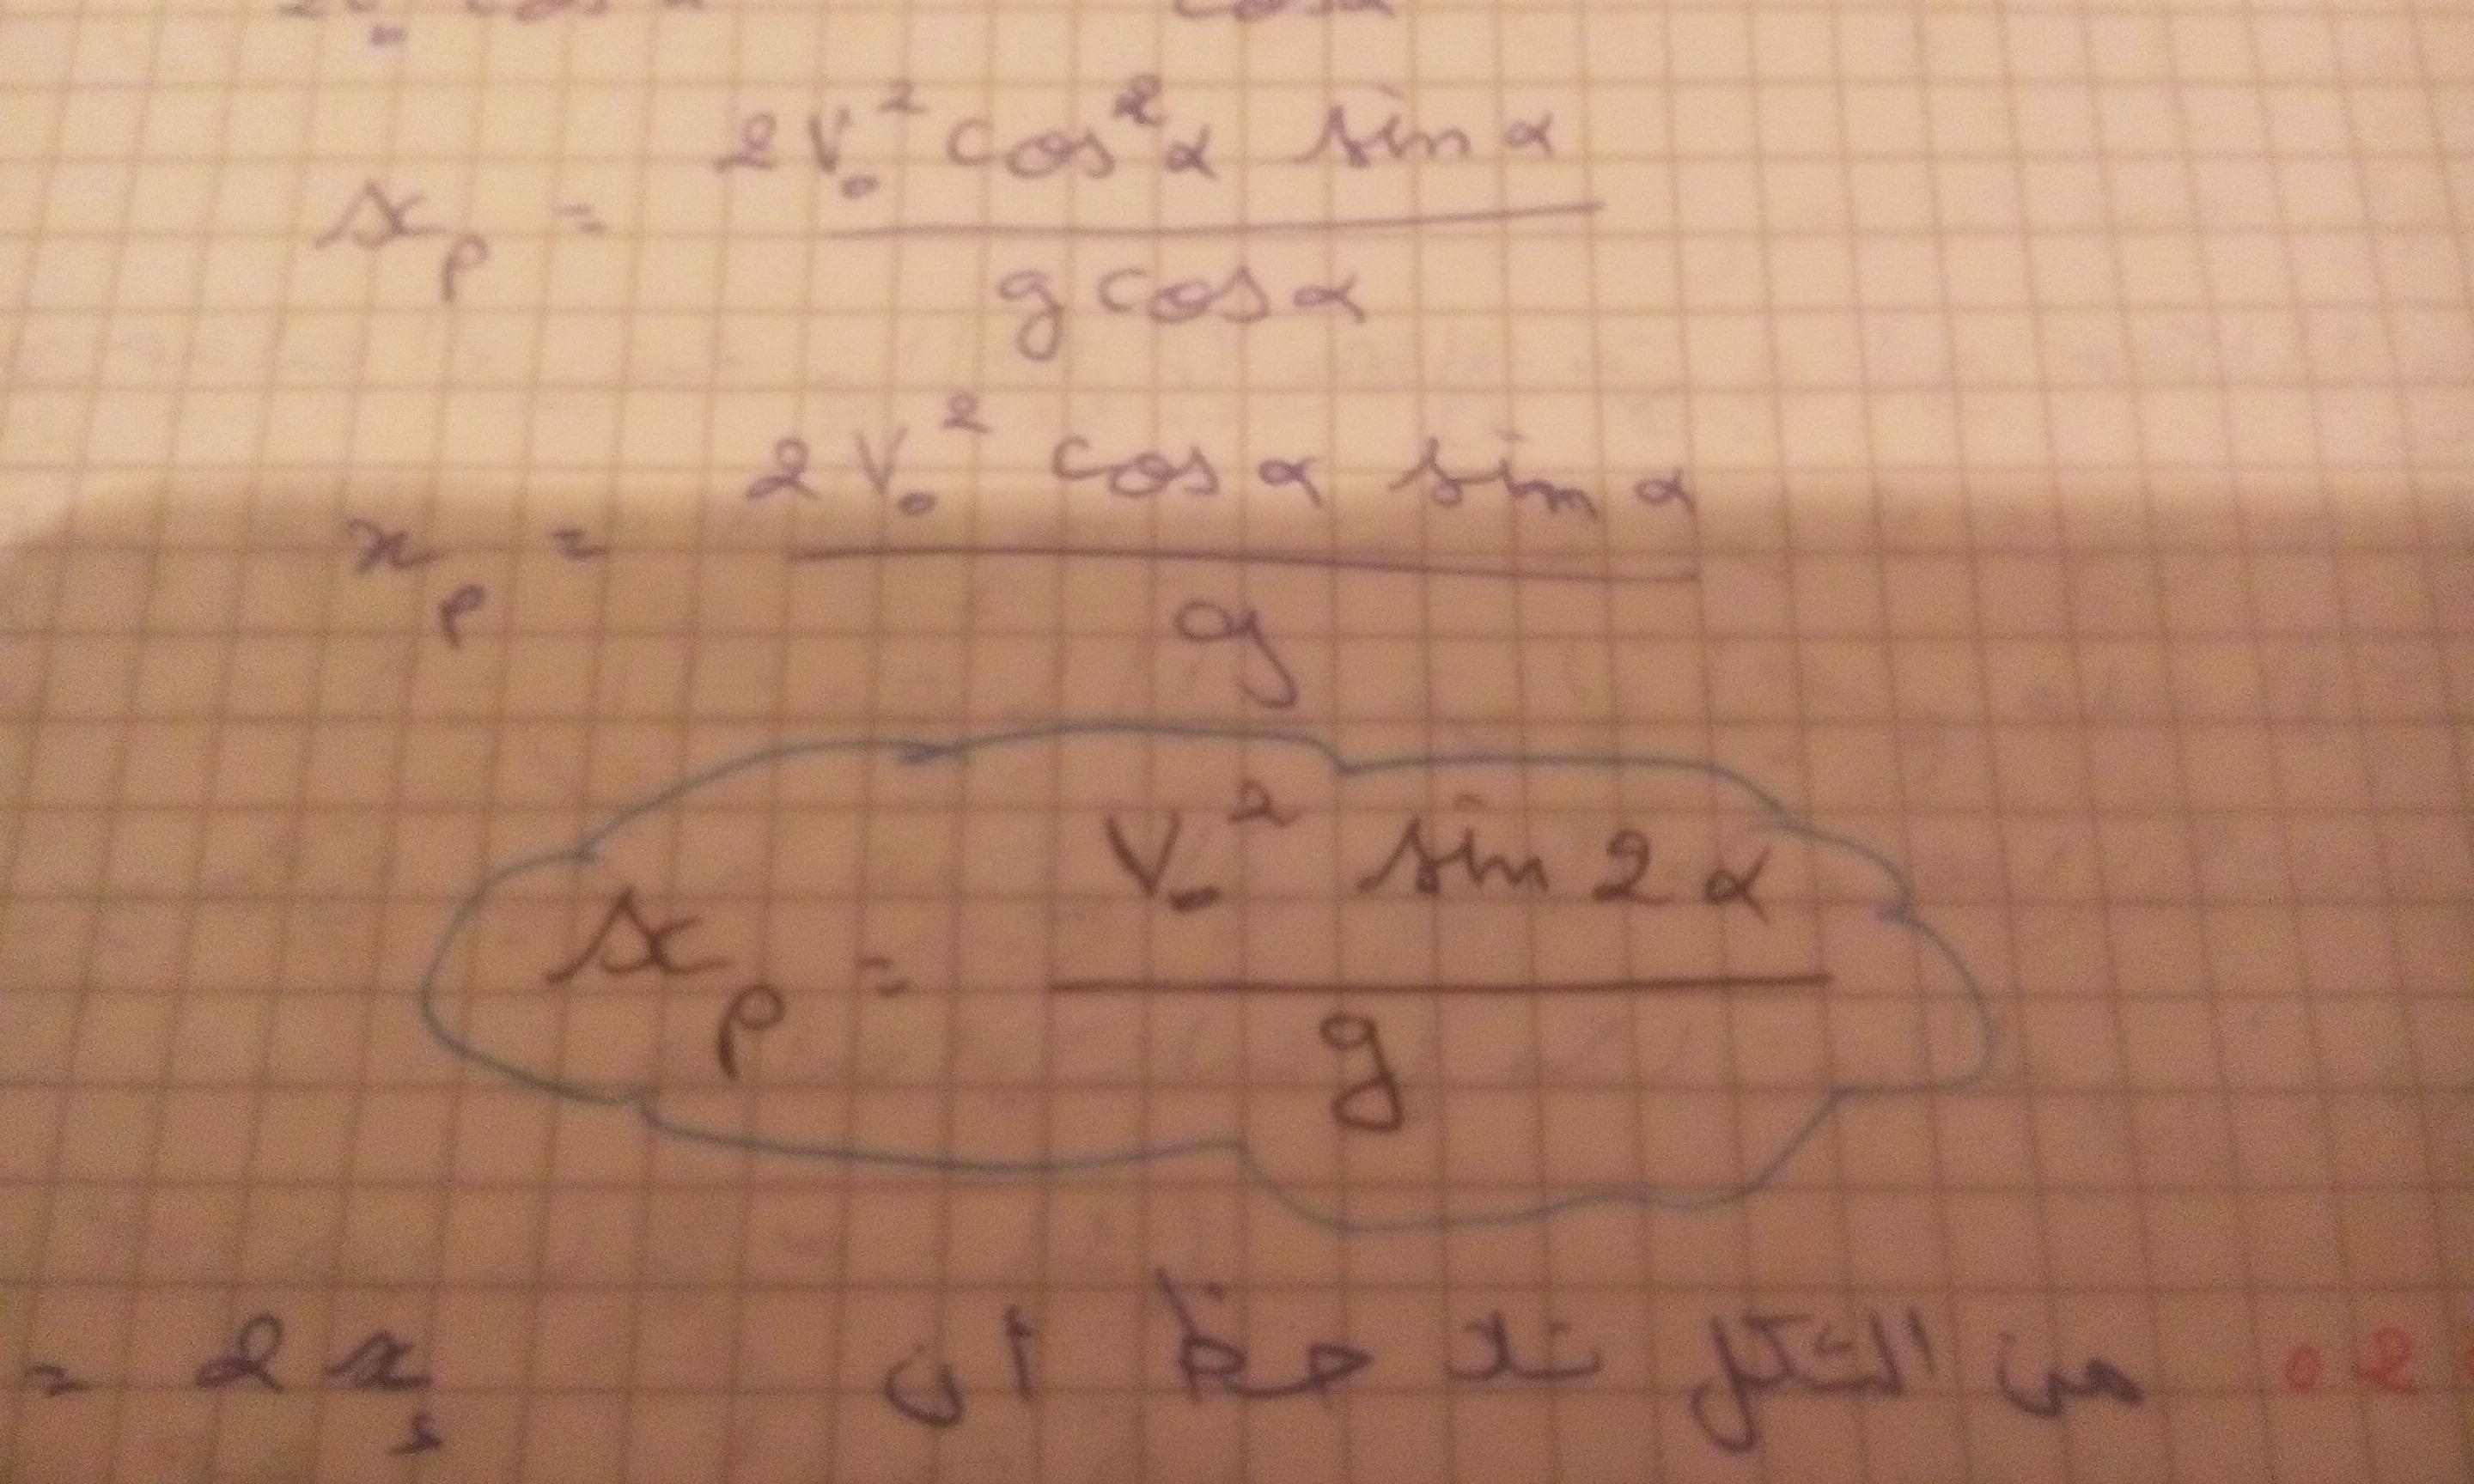 cosα
x_p = 2V₀² cos²α sin α / g cos α
x_p = 2V₀² cos α sin α / g
x_p = V₀² sin 2α / g
02 من الشكل نلاحظ أن = 2x_s